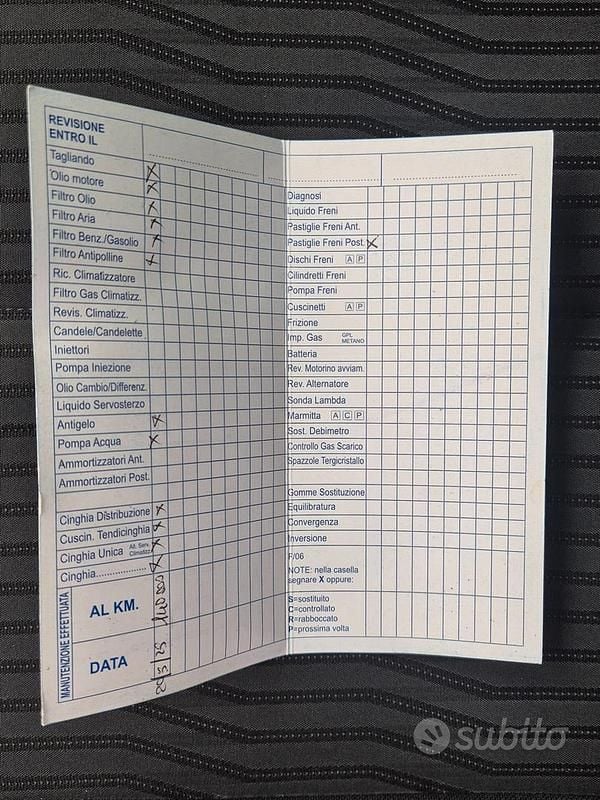 REVISIONE
ENTRO IL
Tagliando X
Olio motore X
Filtro Olio X
Filtro Aria X
Filtro Benz./Gasolio X
Filtro Antipolline
Ric. Climatizzatore
Filtro Gas Climatizz.
Revis. Climatizz.
Candele/Candelette
Iniettori
Pompa Iniezione
Olio Cambio/Differenz.
Liquido Servosterzo
Antigelo X
Pompa Acqua X
Ammortizzatori Ant.
Ammortizzatori Post.
Cinghia Distribuzione X
Cuscin. Tendicinghia X
Cinghia Unica Alt. Serv. Climatizz. X
Cinghia.............. X
MANUTENZIONE EFFETTUATA
AL KM.
DATA
Diagnosi
Liquido Freni
Pastiglie Freni Ant.
Pastiglie Freni Post. X
Dischi Freni A P
Cilindretti Freni
Pompa Freni
Cuscinetti A P
Frizione
Imp. Gas GPL METANO
Batteria
Rev. Motorino avviam.
Rev. Alternatore
Sonda Lambda
Marmitta A C P
Sost. Debimetro
Controllo Gas Scarico
Spazzole Tergicristallo
Gomme Sostituzione
Equilibratura
Convergenza
Inversione
F/06
NOTE: nella casella
segnare X oppure:
S=sostituito
C=controllato
R=rabboccato
P=prossima volta
subito